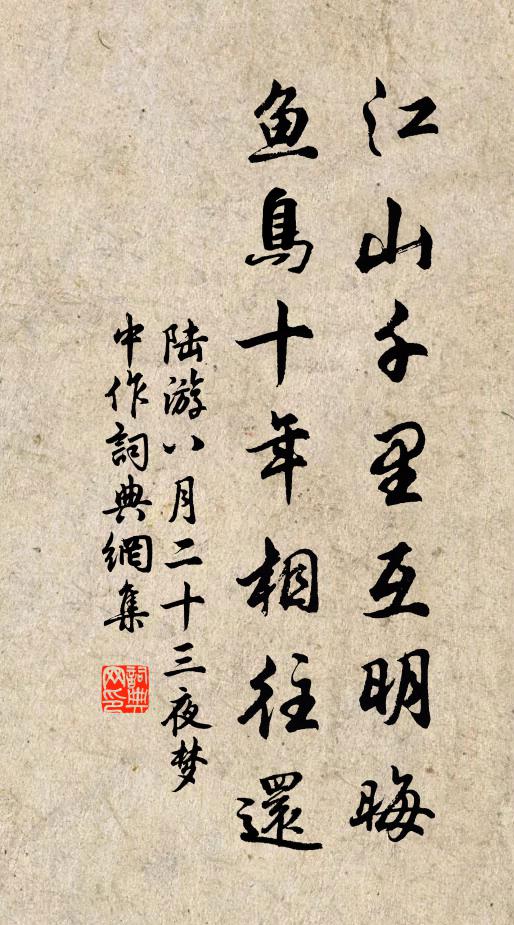 江山千里互明晦
鱼鳥十年相往還
陆游八月二十三夜梦
中作詞典網集
詞典网印